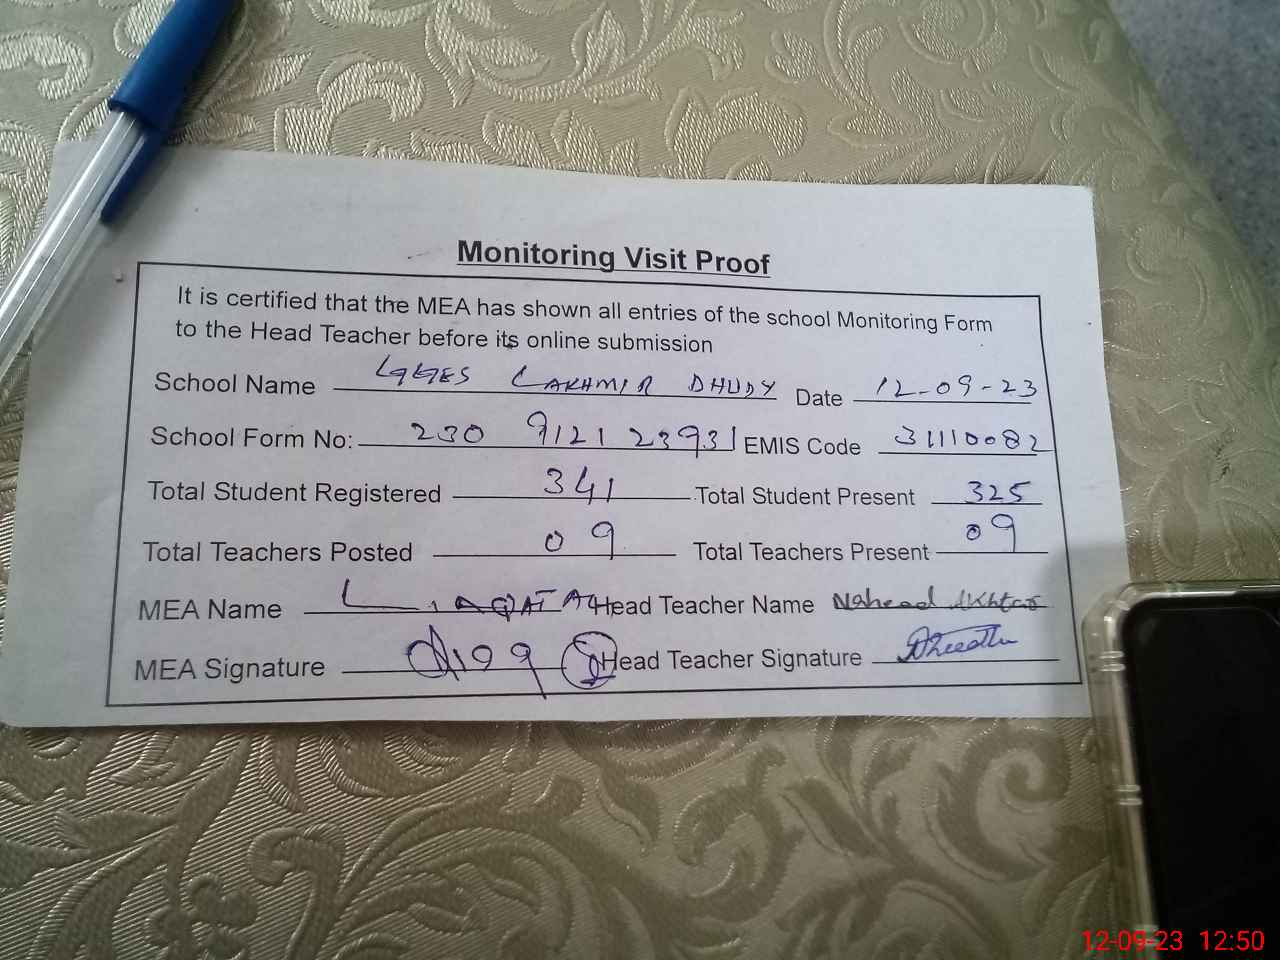 Monitoring Visit Proof
It is certified that the MEA has shown all entries of the school Monitoring Form
to the Head Teacher before its online submission
School Name LAKHMIR DHUDY Date 12-09-23
School Form No: 230 9121 23931 EMIS Code 31110082
Total Student Registered 341 Total Student Present 325
Total Teachers Posted 09 Total Teachers Present 09
MEA Name Head Teacher Name Naheed Akhtar
MEA Signature Head Teacher Signature
12-09-23 12:50